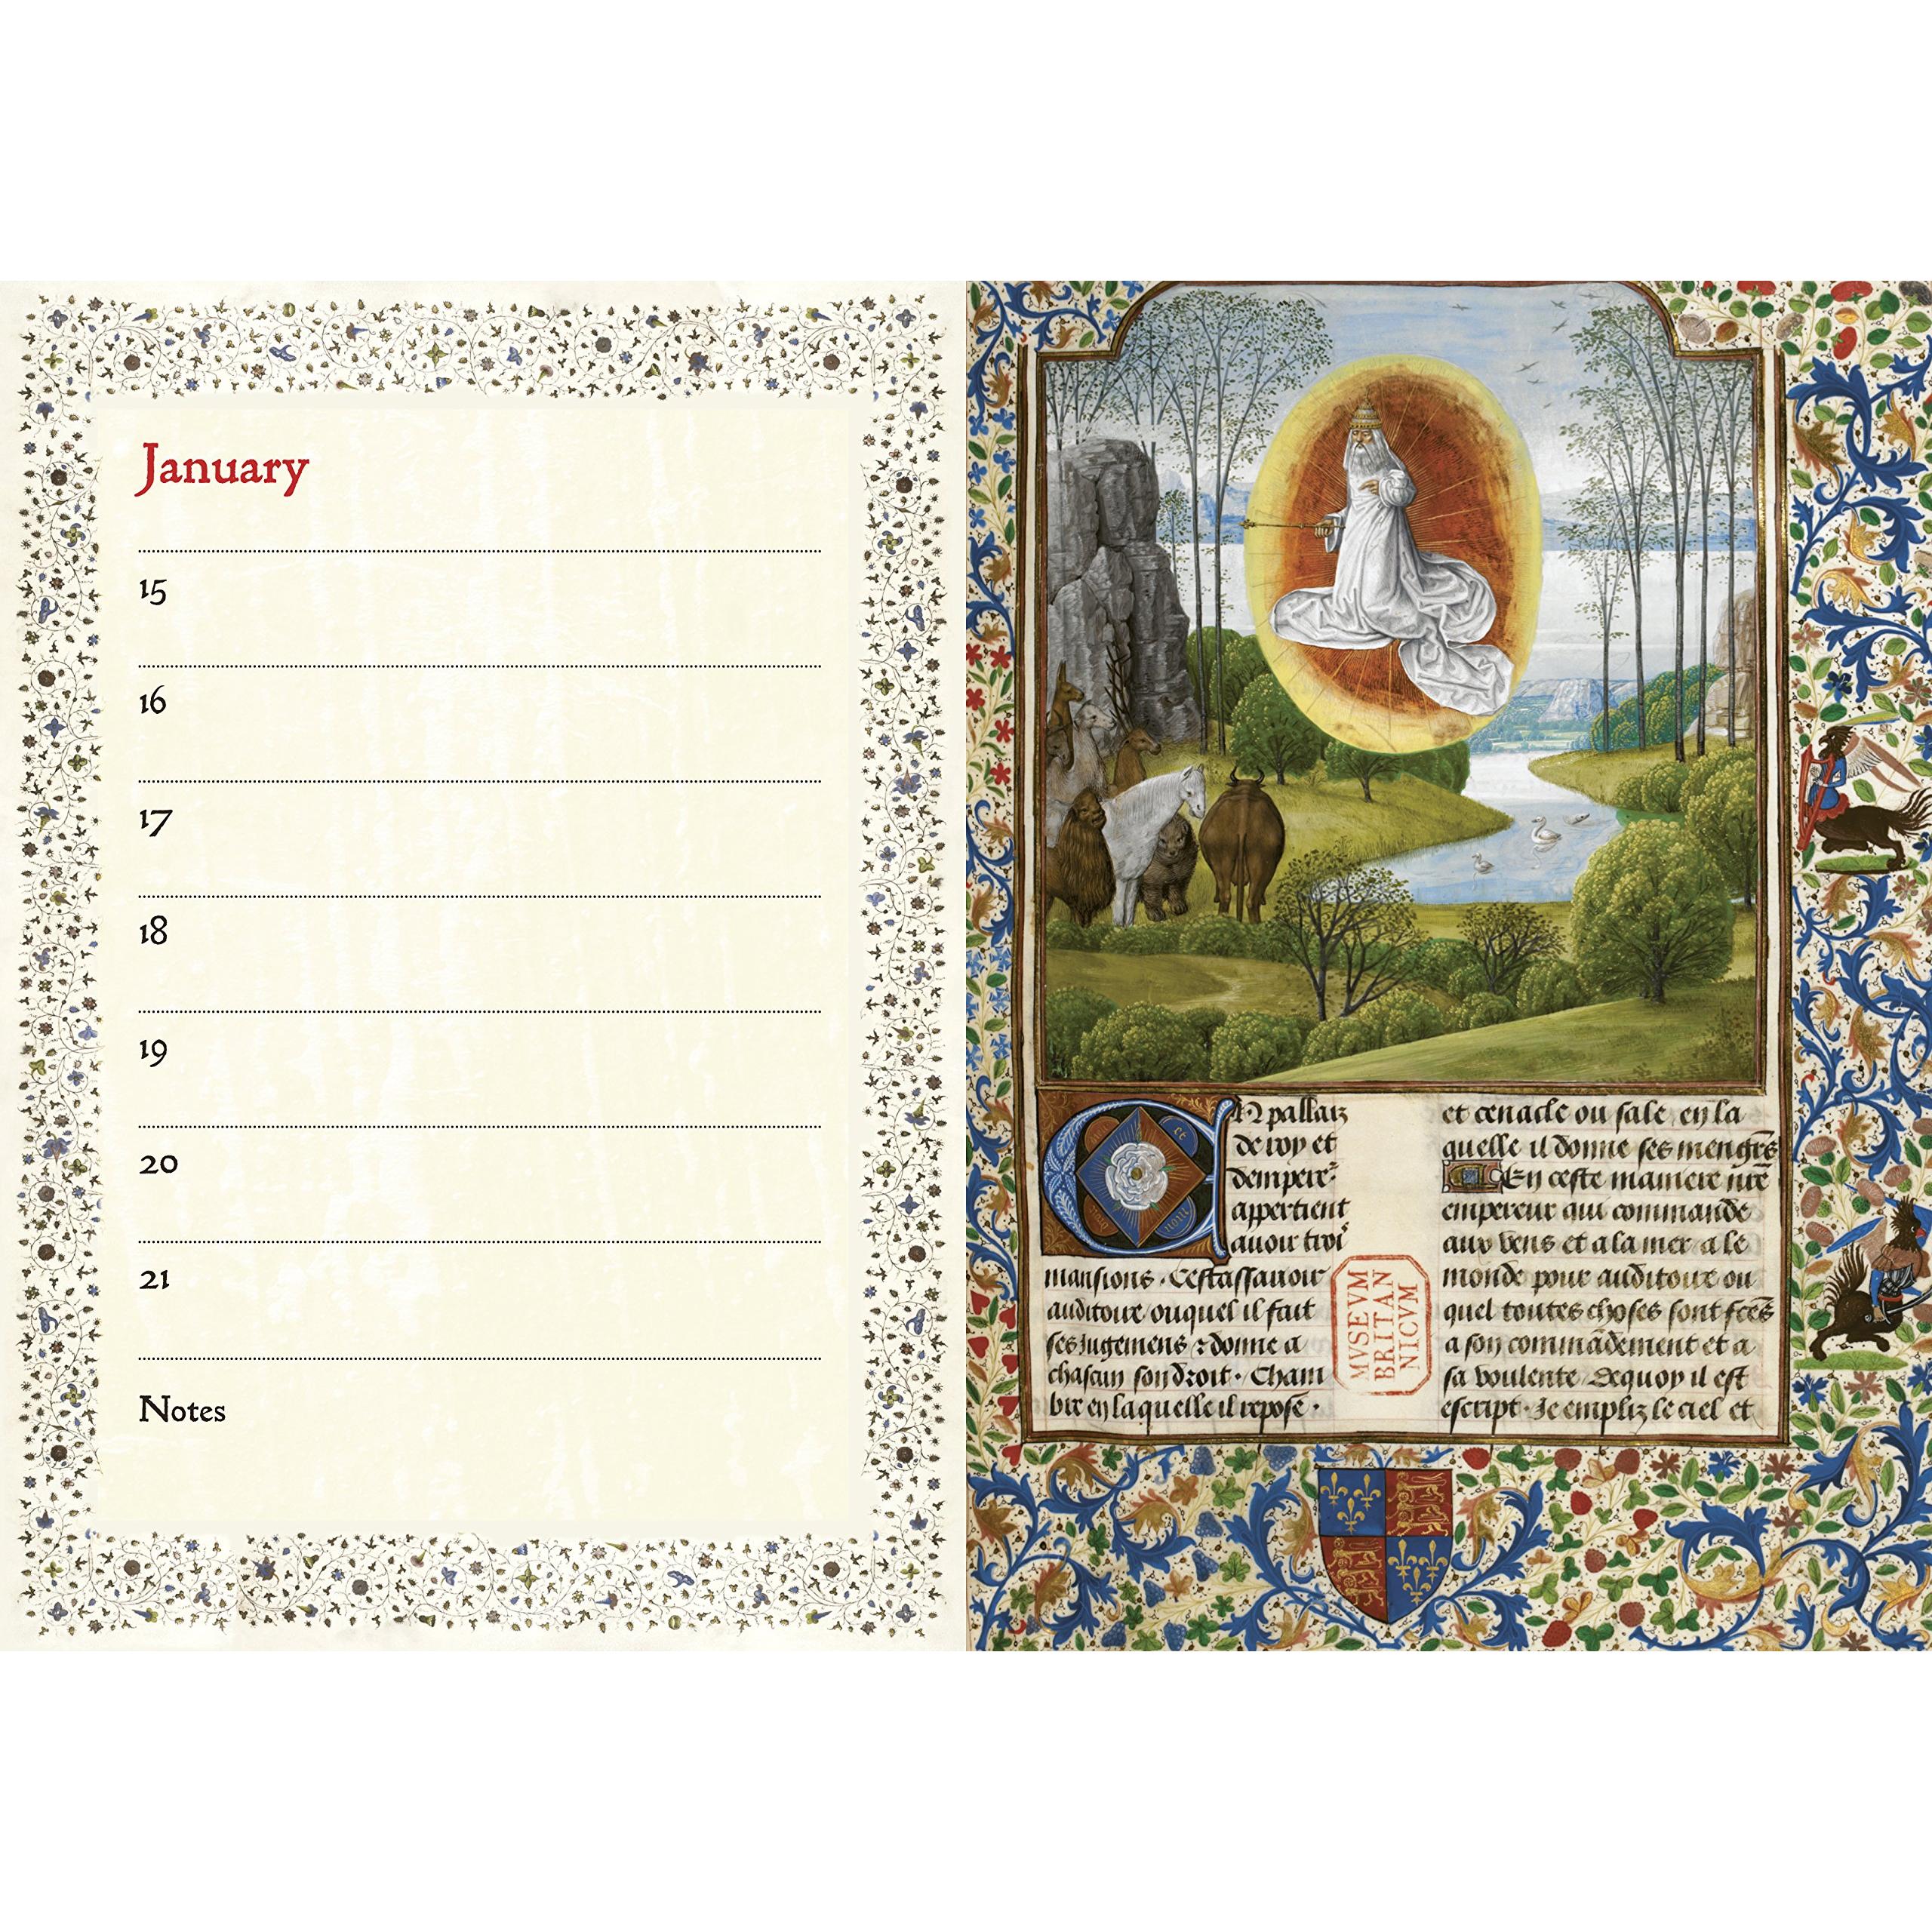 January
15
16
17
18
19
20
21
Notes
En pallaiz
de roy et
dempere
appertient
auoir troi
mansions · Cestassauoir
auditoire ouquel il fait
ses Jugemens ⁊ donne a
chascun son droit · Cham
bre en laquelle il repose ·
et cenacle ou sale, en la
quelle il donne ses
En ceste maniere nr̄e
empereur qui commande
aux vens et a la mer a le
monde pour auditoire ou
quel toutes choses sont fc̄es
a son commādement et a
sa voulente Dequoy il est
escript · Je empliz le ciel et
MVSEVM
BRITAN
NICVM